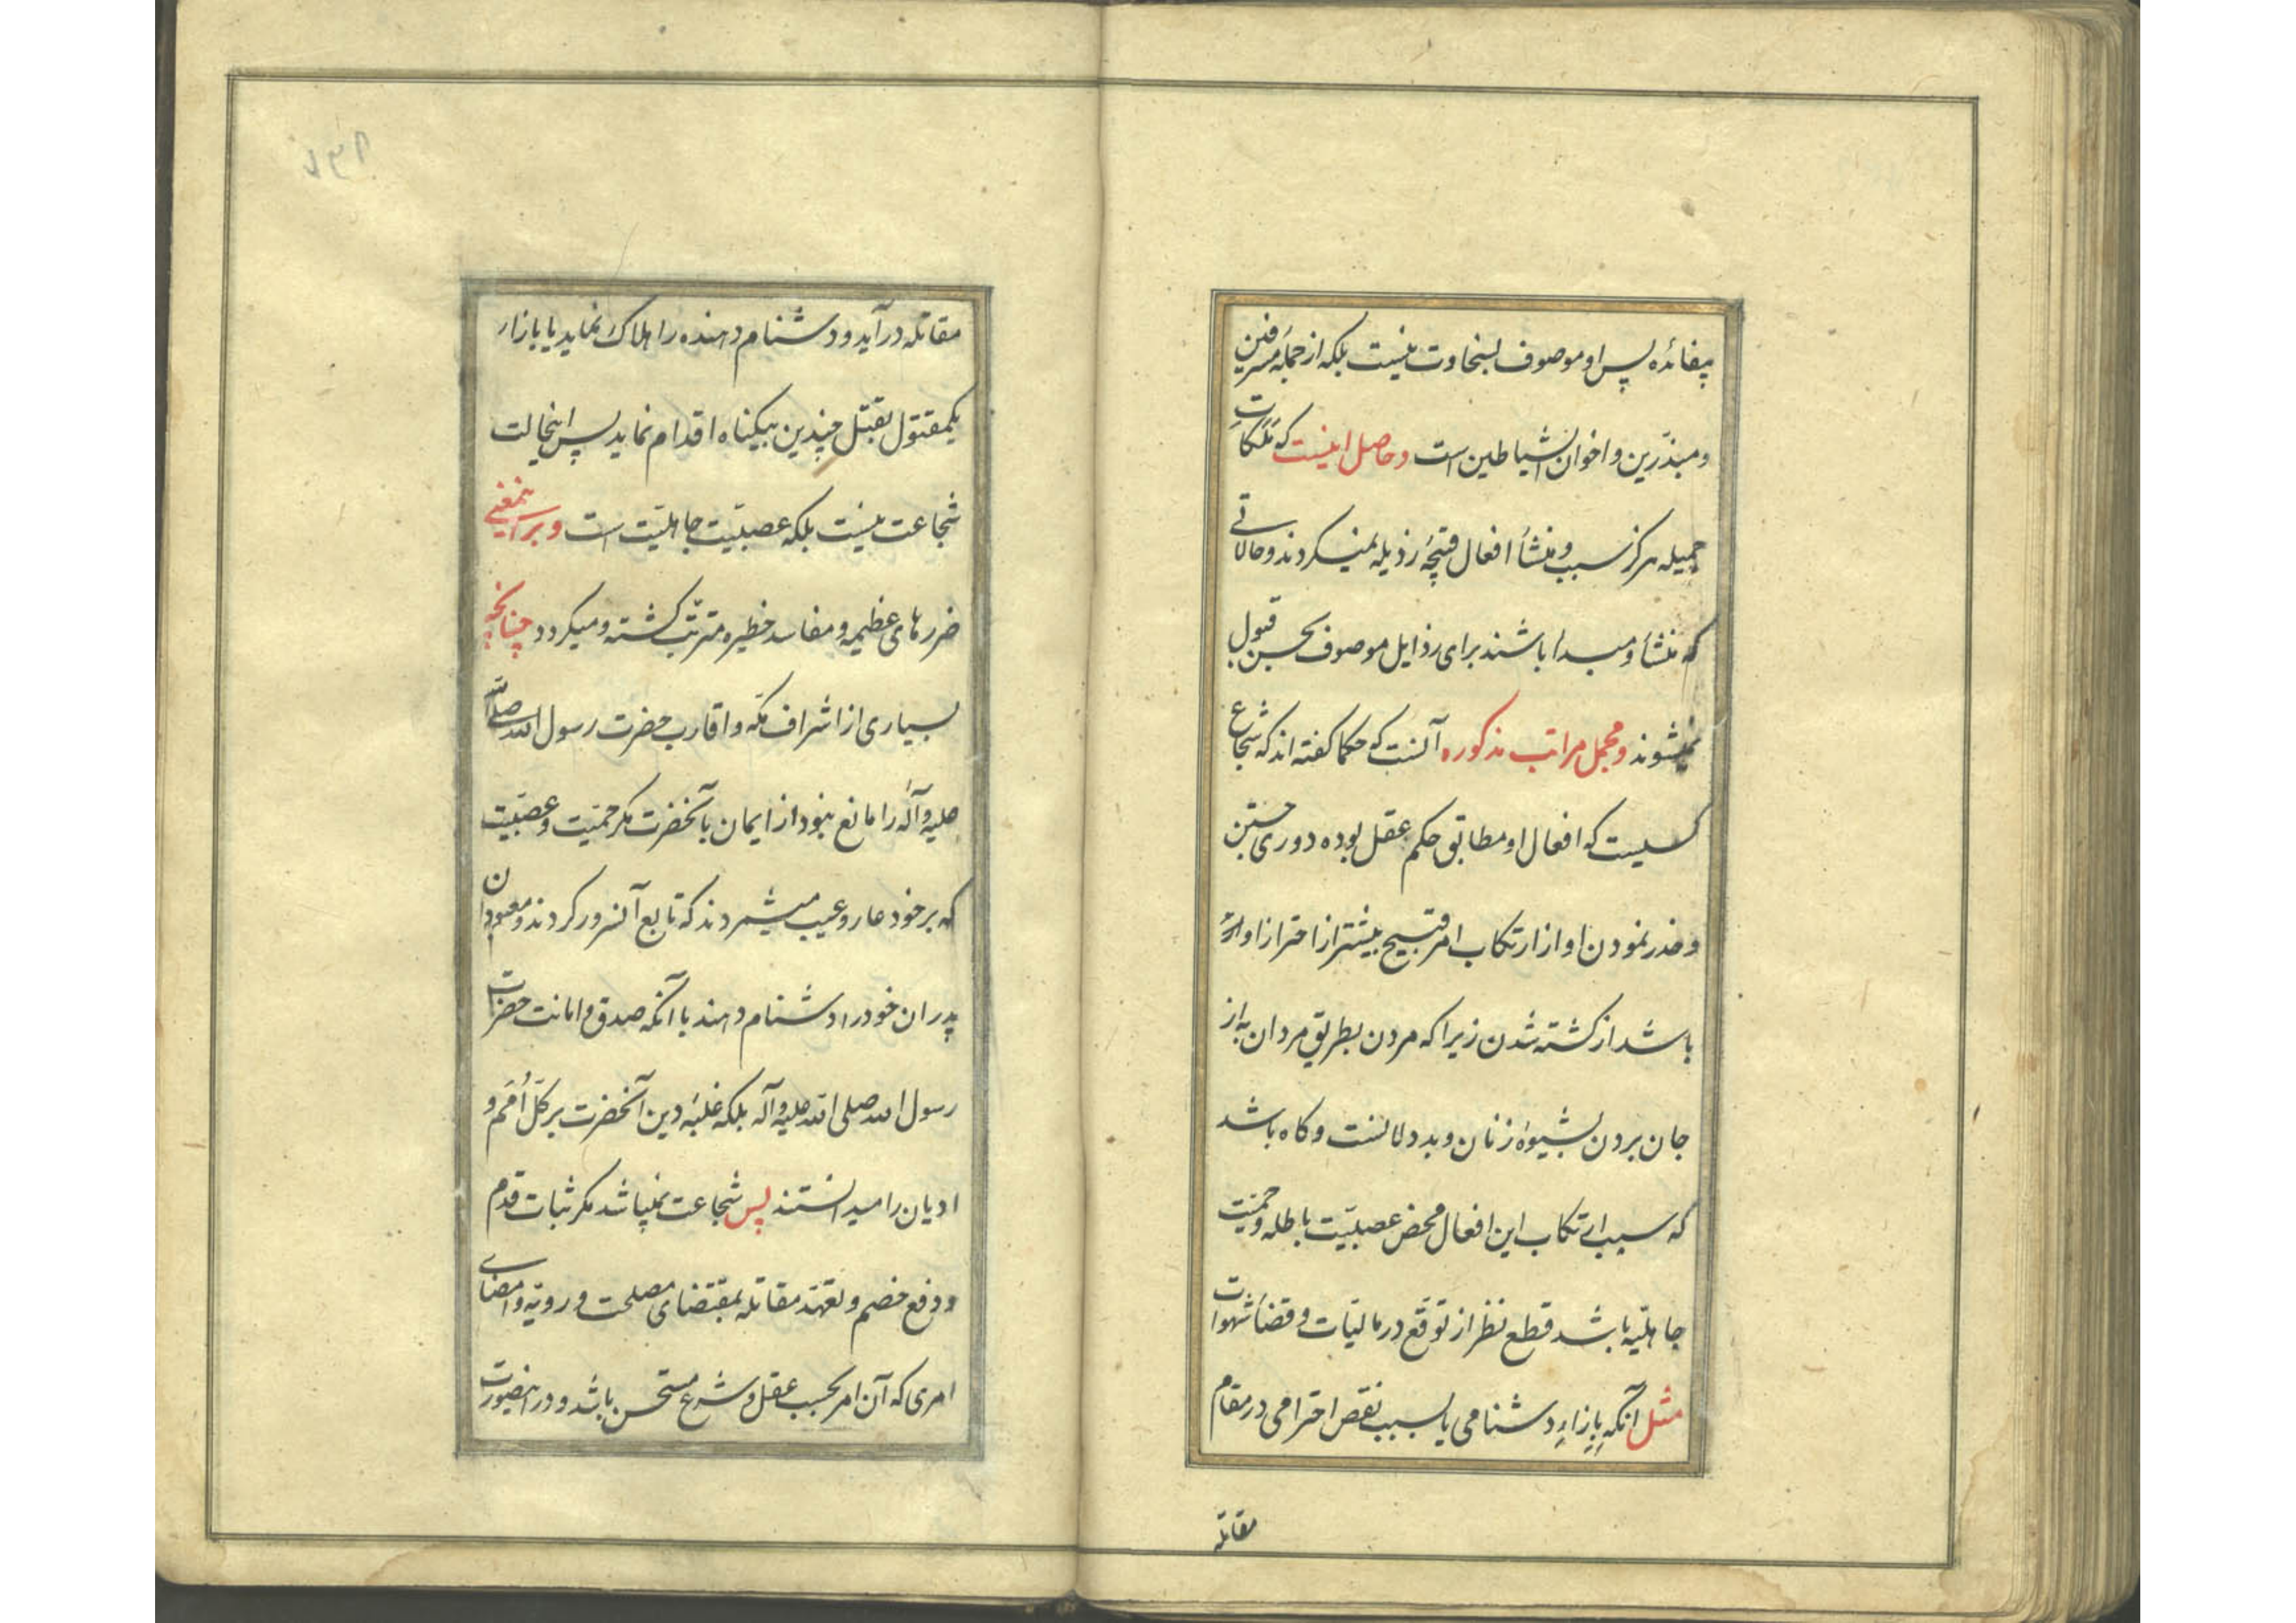 بیفائده پس او موصوف بسخاوت نیست بلکه از جمله مسرفین
و مبذّرین و اخوان الشیاطین است و حاصل اینست که ملکات
جمیله هرگز سبب و منشأ افعال قبیحه رذیله نمیکردند و حالاتی
که منشأ و مبدا باشند برای رذایل موصوف بحسن قبول
نمیشوند و مجمل مراتب مذکوره آنست که حکما کفته اند که شجاع
کسیست که افعال او مطابق حکم عقل بوده دوری جستن
و حذر نمودن او از ارتکاب امر قبیح بیشتر از احتراز او
باشد از کشته شدن زیرا که مردن بطریق مردان به از
جان بردن بشیوه زنان و بددلانست و کاه باشد
که سبب ارتکاب این افعال محض عصبیّت باطله و حمیّت
جاهلیّه باشد قطع نظر از توقّع در مالیّات و قضآء شهوات
مثل آنکه بازاء دشنامی یا بسبب نقص احترامی در مقام
مقاتله
مقاتله درآید و دشنام دهنده را هلاک نماید یا بازاء
یکمقتول بقتل چندین بیکناه اقدام نماید پس اینحالت
شجاعت نیست بلکه عصبیّت جاهلیّت است و بر اینمعنی
ضررهای عظیمه و مفاسد خطیره مترتّب کشته و میکردد چنانچه
بسیاری از اشراف مکّه و اقارب حضرت رسول الله صلی الله
علیه و آله را مانع نبود از ایمان بآنحضرت مکر حمیّت و عصبیّت
که بر خود عار و عیب میشمردند که تابع آنسرور کردند و معبودان
پدران خود را دشنام دهند با آنکه صدق و امانت حضرت
رسول الله صلی الله علیه و آله بلکه غلبه دین آنحضرت بر کلّ اُمَم و
ادیان را میدانستند پس شجاعت نمیباشد مکر ثبات قدم
و دفع خصم و تعهّد مقاتله بمقتضای مصلحت و رویّه و امضای
امری که آن امر بحسب عقل و شرع مستحسن باشد و در اینصورت